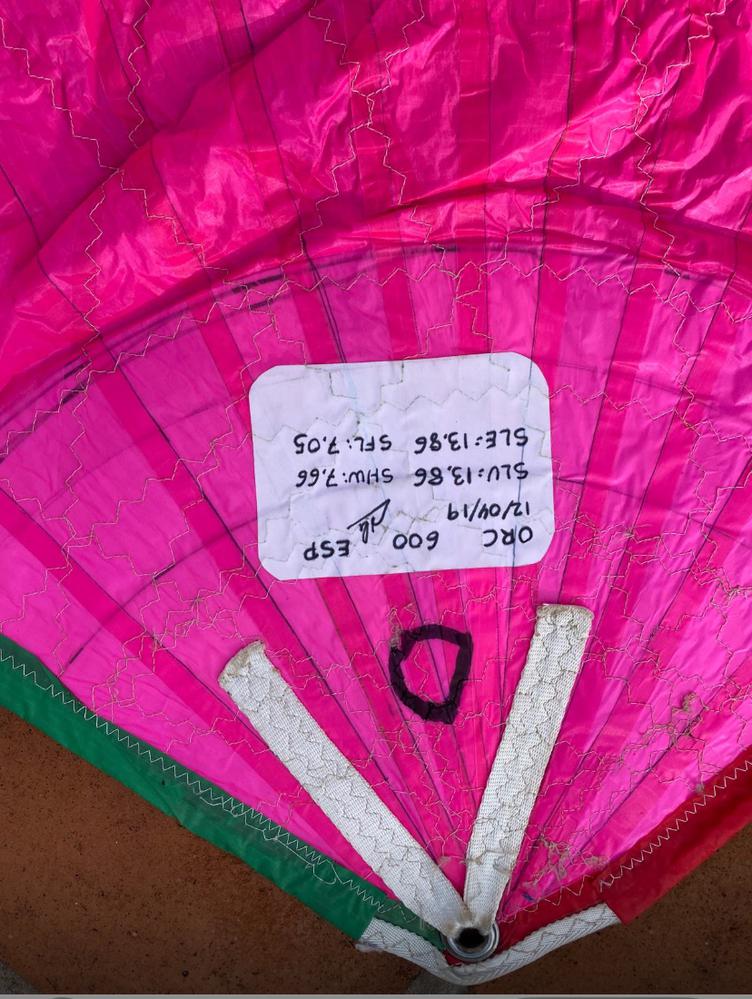 ORC 600 ESP
12/04/19
SLU:13.86 SHW:7.66
SLE=13.86 SFL:7.05
O